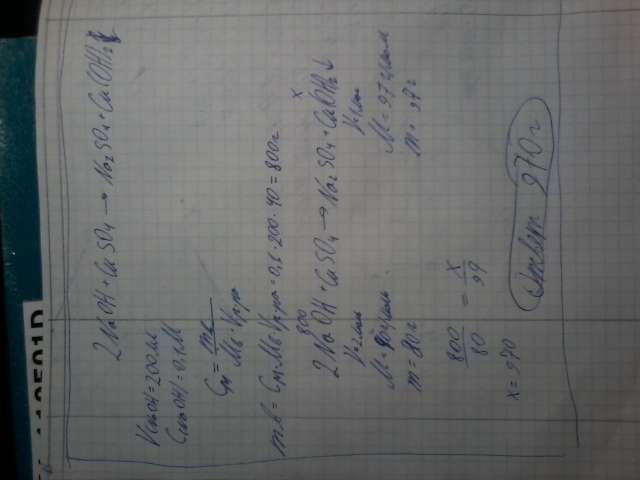 2NaOH + CuSO₄ → Na₂SO₄ + Cu(OH)₂↓
V(NaOH) = 200 мл
C(NaOH) = 0,1 М
Cм = mв / Mв · Vр-ра
mв = Cм · Mв · Vр-ра = 0,1 · 200 · 40 = 800 г.
800 x
2NaOH + CuSO₄ → Na₂SO₄ + Cu(OH)₂↓
V=2моль V=1моль
M = г/моль M = 97 г/моль
m = 80 г m = 97 г
800/80 = x/
x = 970
Ответ: 970 г